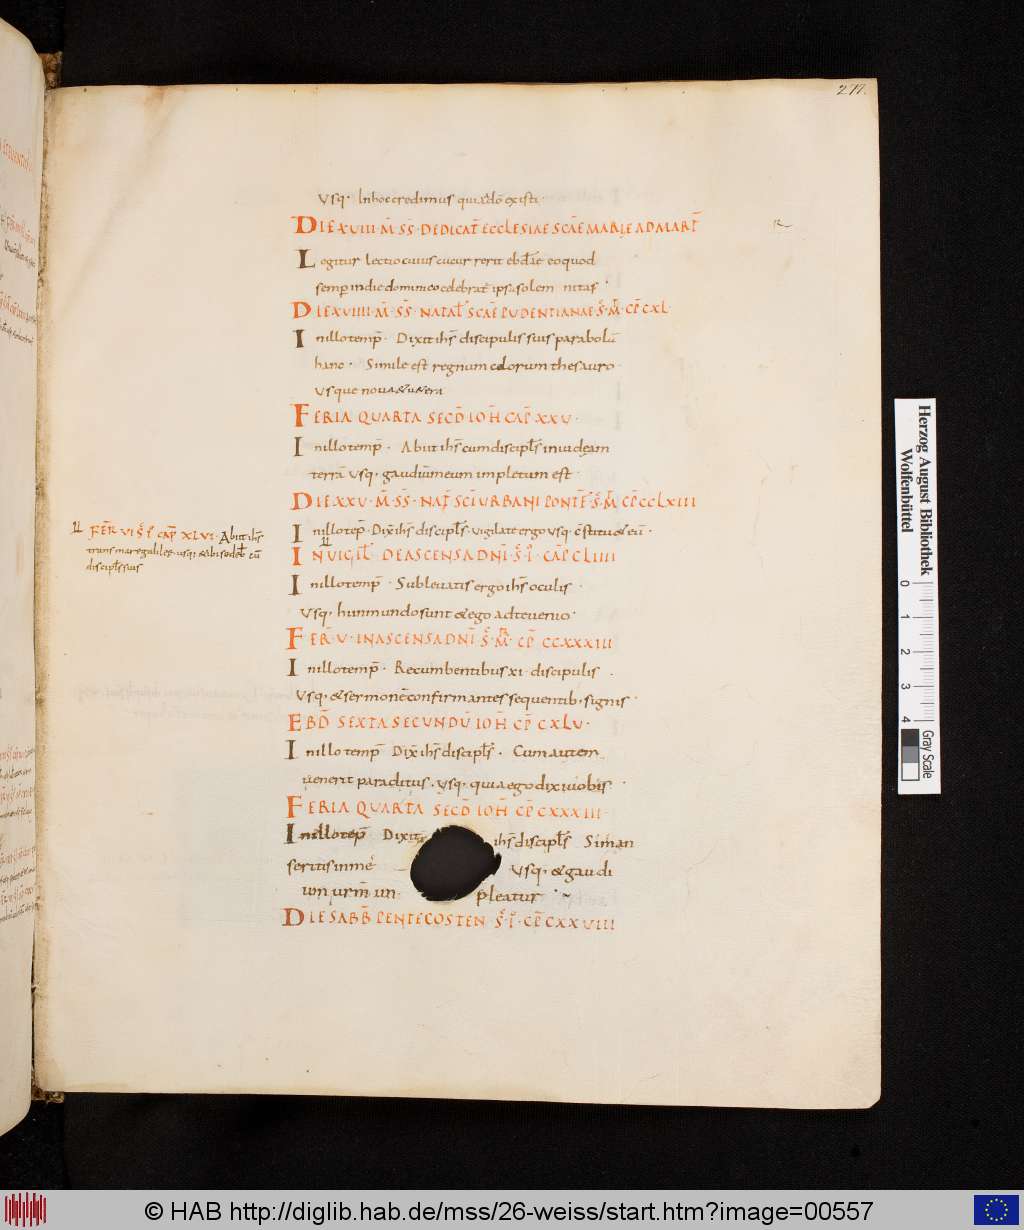 277.
Usq· In hoc credimus quia a dō existi·
DIE XVIII· M̄· SS̄· DEDICAT̄ ECCLESIAE SCĀE MARIE AD MART̄
Legitur lectio cuius cucurrerit ebdāe eo quod
semp in die dominico celebrat̄ ipsa solemnitas·
DIE XVIIII· M̄· SS̄· NATAL̄ SCĀE PUDENTIANAE S̄· M̄· CP̄ CXL·
In illo temp̄· Dixit ihs̄ discipulis suis parabolā
hanc· Simile est regnum celorum thesauro·
Usque nova & vetera
FERIA QUARTA SECD̄ IOH̄ CAP̄ XXV·
In illo temp̄· Abiit ihs̄ cum discipl̄s in iudeam
terrā usq· gaudiū meum impletum est·
DIE XXV· M̄· SS̄· NAT̄ SCĪ URBANI PONTF̄ S̄· M̄· CP̄ CCLXIII
In illo tep̄· Dix̄ ihs̄ discipl̄s· Vigilate ergo usq· cstituet eū·
IN UIGIL̄· DE ASCENSA DNĪ· S̄· L̄· CAP̄ CLIIII
In illo temp̄· Sublevatis ergo ihs̄ oculis·
Usq· hii in mundo sunt & ego ad te venio·
FER̄ V· IN ASCENSA DNĪ S̄· M̄R· CP̄ CCXXXIII
In illo temp̄· Recumbentibus XI· discipulis·
Usq· & sermonē confirmantes sequentib· signis·
EBD̄ SEXTA SECUNDŪ IOH̄ CP̄ CXLV·
In illo temp̄ Dix̄ ihs̄ discipl̄s· Cum autem
venerit paraclitus· usq· quia ego dixi vobis·
FERIA QUARTA SECD̄ IOH̄ CP̄ CXXXIII·
In illo tep̄ Dixit ihs̄ discipl̄s Si man
seritis in me Usq· & gaudi
pleatur·
DIE SABB̄ PENTECOSTEN· S̄· L̄· CP̄ CXXVIIII
FER̄ VI S̄ L̄ CAP̄ XLVI· Abiit ihs̄
trans mare galilee· usq· & ibi sedeb̄ cū
discipl̄s suis
Herzog August Bibliothek
Wolfenbüttel
0 1 2 3 4
Gray Scale
© HAB http://diglib.hab.de/mss/26-weiss/start.htm?image=00557